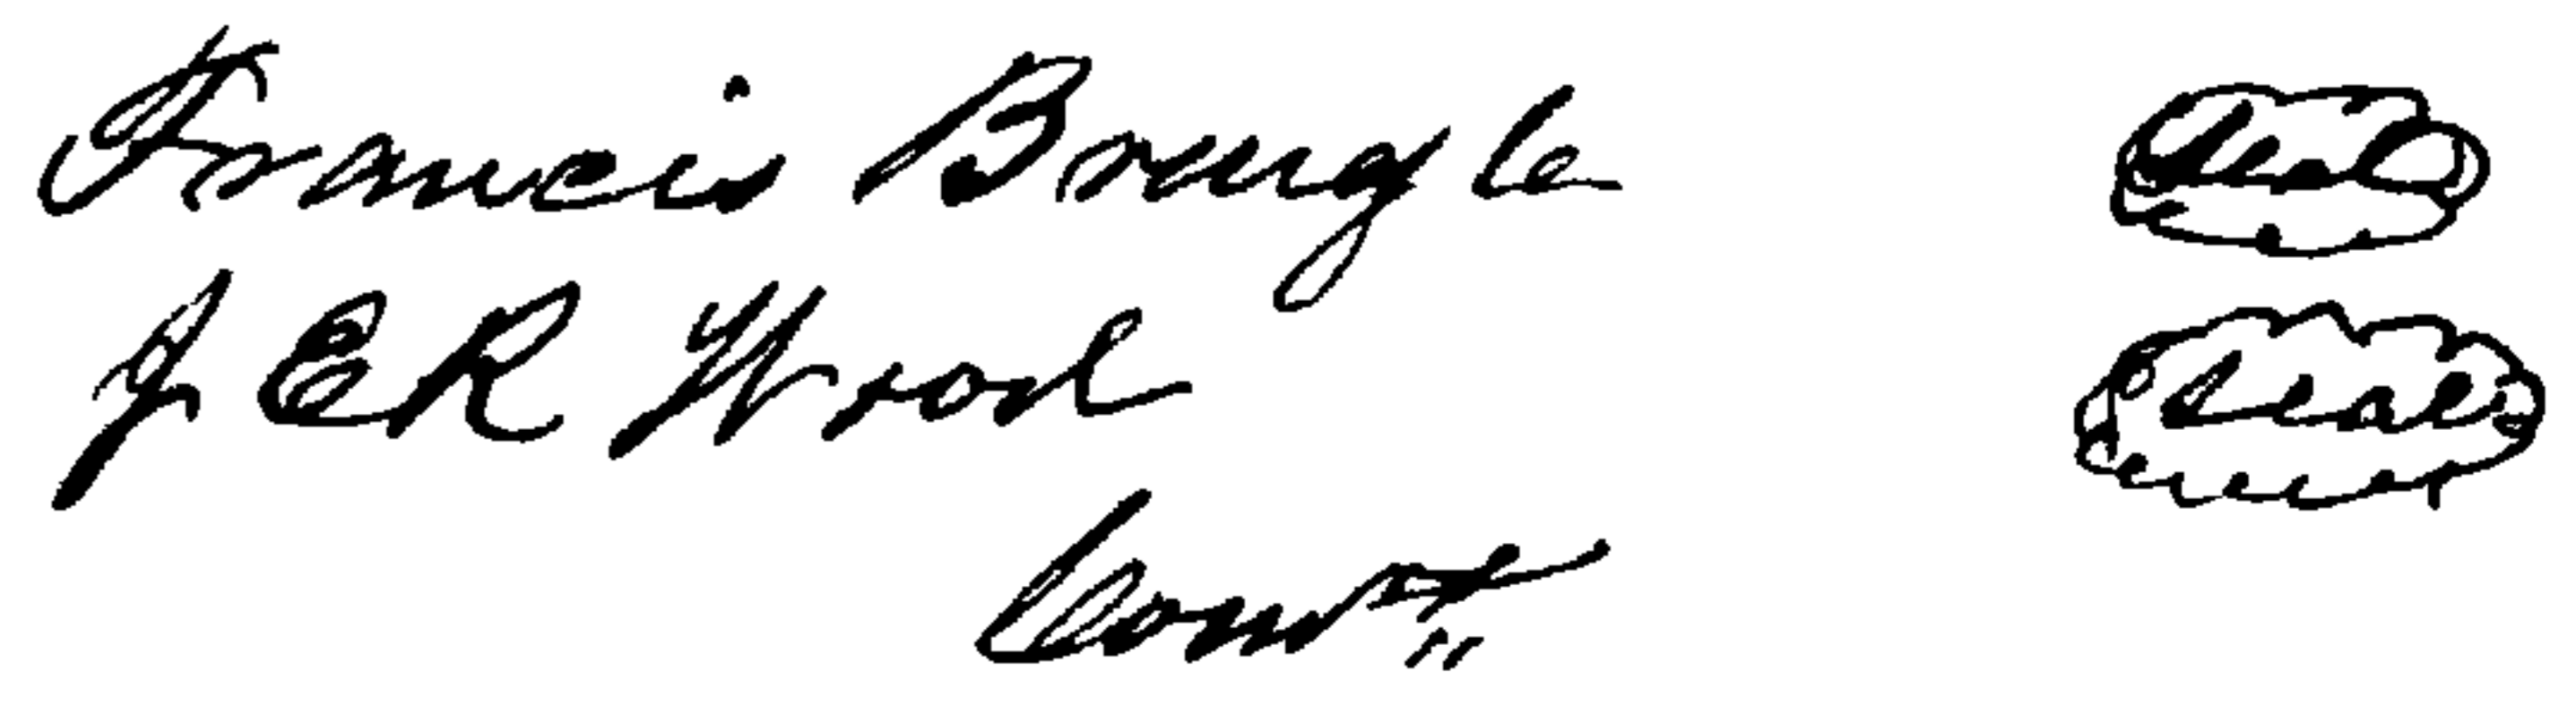 Francis Brengle Seal
J E R Wood Seal
Comtt